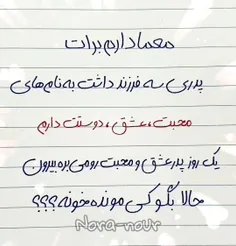 معما دارم برات
پدری سه فرزند داشت به نام‌های
محبت، عشق، دوستت دارم
یک روز پدر عشق و محبت رو می‌بره بیرون
حالا بگو کی مونده خونه؟؟؟
Nora-nour